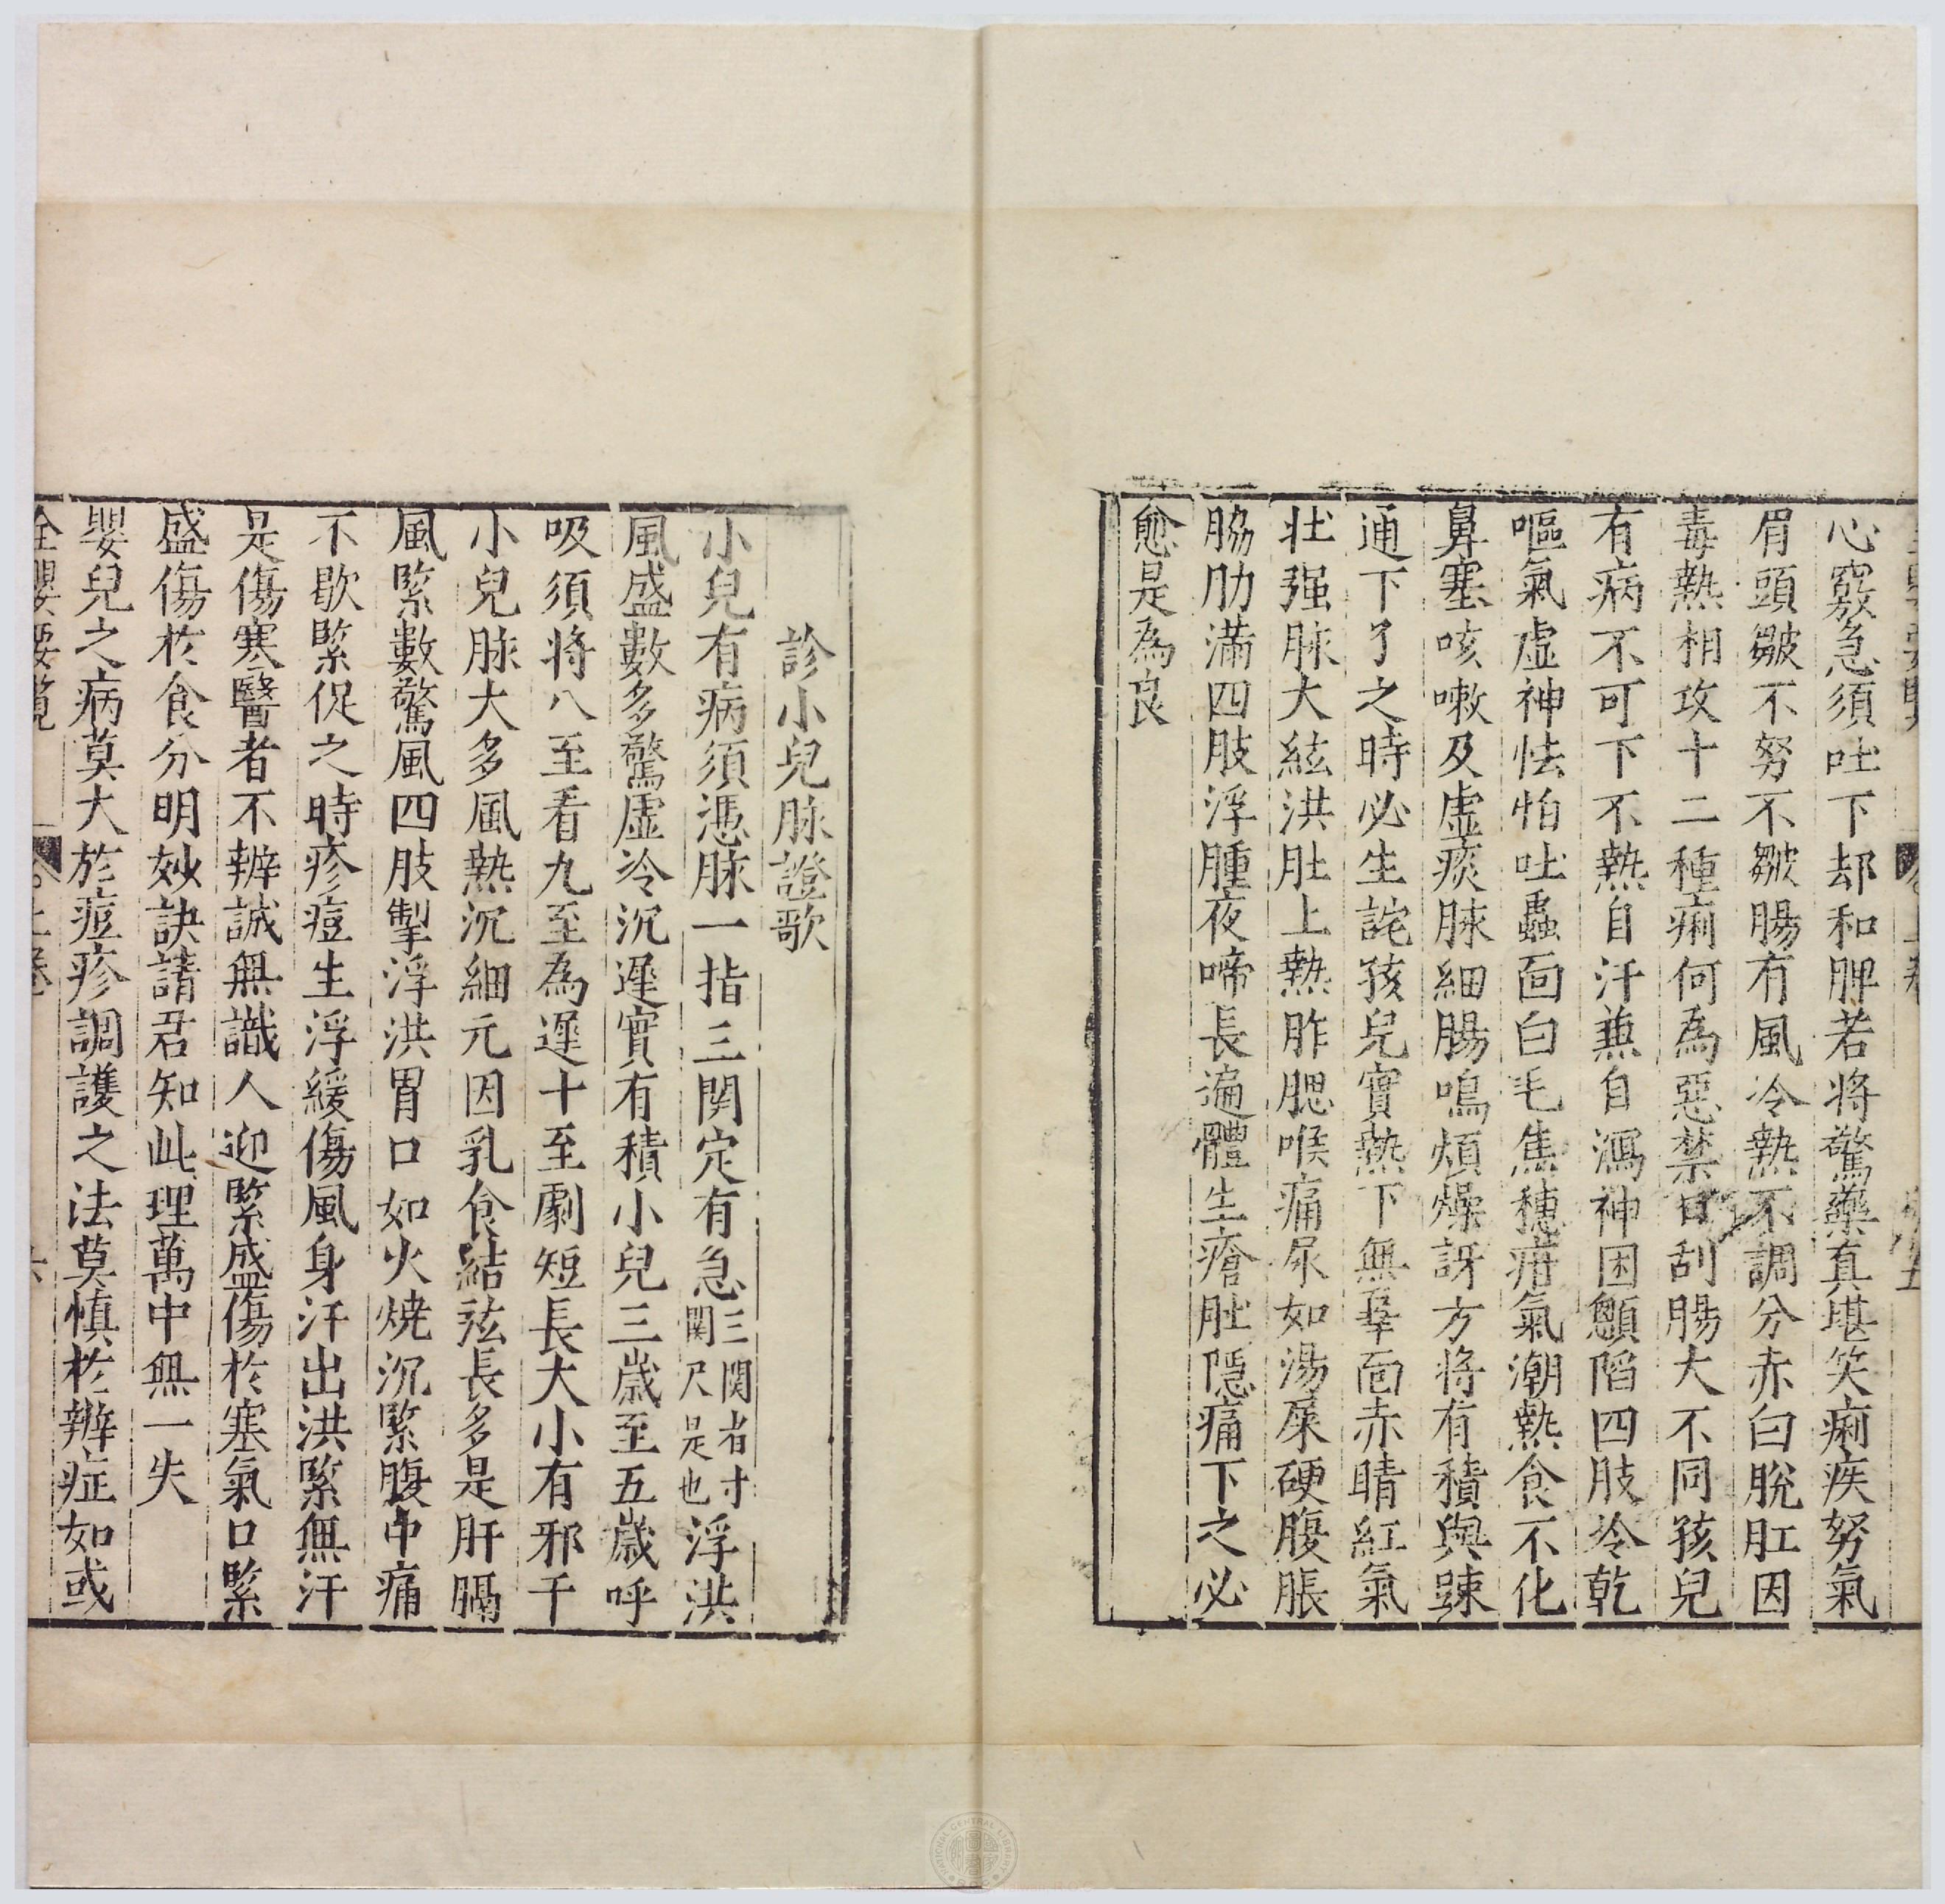 心竅急須吐下却和脾若将驚藥真堪笑痢疾努氣
眉頭皺不努不皺腸有風冷熱不調分赤白脫肛因
毒熱相攻十二種痢何為惡禁口刮腸大不同孩兒
有病不可下不熱自汗兼自瀉神困顖陷四肢冷乾
嘔氣虛神怯怕吐蟲面白毛焦穗疳氣潮熱食不化
鼻塞咳嗽及虛痰脉細腸鳴煩燥訝方将有積與踈
通下了之時必生詫孩兒實熱下無辜面赤睛紅氣
壮强脉大絃洪肚上熱胙腮喉痛尿如湯屎硬腹脹
脇肋滿四肢浮腫夜啼長遍體生瘡肚隱痛下之必
愈是為良
診小兒脉證歌
小兒有病須憑脉一指三関定有急三関者寸関尺是也浮洪
風盛數多驚虛冷沉遲實有積小兒三歲至五歲呼
吸須将八至看九至為遲十至劇短長大小有邪干
小兒脉大多風熱沉細元因乳食結弦長多是肝膈
風緊數驚風四肢掣浮洪胃口如火燒沉緊腹中痛
不歇緊促之時疹痘生浮緩傷風身汗出洪緊無汗
是傷寒醫者不辨誠無識人迎緊盛傷於寒氣口緊
盛傷於食分明妙訣請君知此理萬中無一失
嬰兒之病莫大於痘疹調護之法莫慎於辨症如或
全嬰要覽 上卷 六